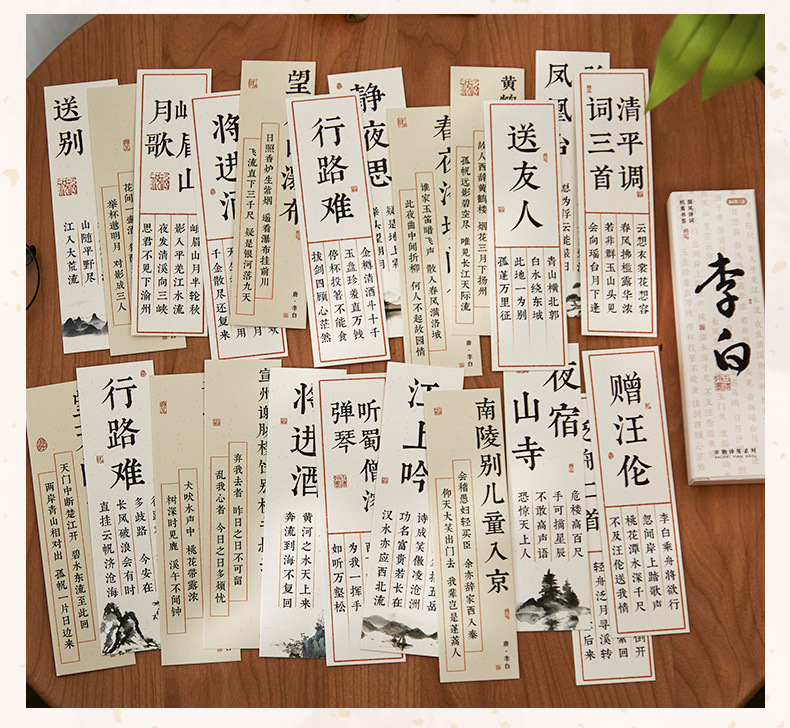 送别
山随平野尽
江入大荒流
花间一壶酒
举杯邀明月 对影成三人
峨眉山
月歌
峨眉山月半轮秋
影入平羌江水流
夜发清溪向三峡
思君不见下渝州
将进酒
千金散尽还复来
望
瀑布
日照香炉生紫烟 遥看瀑布挂前川
飞流直下三千尺 疑是银河落九天
唐·李白
行路难
金樽清酒斗十千
玉盘珍羞直万钱
停杯投箸不能食
拔剑四顾心茫然
静夜思
春夜洛
谁家玉笛暗飞声 散入春风满洛城
此夜曲中闻折柳 何人不起故园情
唐·李白
黄
故人西辞黄鹤楼 烟花三月下扬州
孤帆远影碧空尽 唯见长江天际流
送友人
青山横北郭
白水绕东城
此地一为别
孤蓬万里征
凤凰台
总为浮云能蔽日
清平调
词三首
云想衣裳花想容
春风拂槛露华浓
若非群玉山头见
会向瑶台月下逢
国风诗词
纸质书签
李白
古韵诗笺系列
天门中断楚江开 碧水东流至此回
两岸青山相对出 孤帆一片日边来
行路难
多歧路 今安在
长风破浪会有时
直挂云帆济沧海
犬吠水声中 桃花带露浓
树深时见鹿 溪午不闻钟
宣州谢朓楼饯别校
弃我去者 昨日之日不可留
乱我心者 今日之日多烦忧
将进酒
黄河之水天上来
奔流到海不复回
听蜀僧
弹琴
为我一挥手
如听万壑松
江上吟
诗成笑傲凌沧洲
功名富贵若长在
汉水亦应西北流
南陵别儿童入京
会稽愚妇轻买臣 余亦辞家西入秦
仰天大笑出门去 我辈岂是蓬蒿人
唐·李白
夜宿
山寺
危楼高百尺
手可摘星辰
不敢高声语
恐惊天上人
二首
轻舟泛月寻溪转
赠汪伦
李白乘舟将欲行
忽闻岸上踏歌声
桃花潭水深千尺
不及汪伦送我情